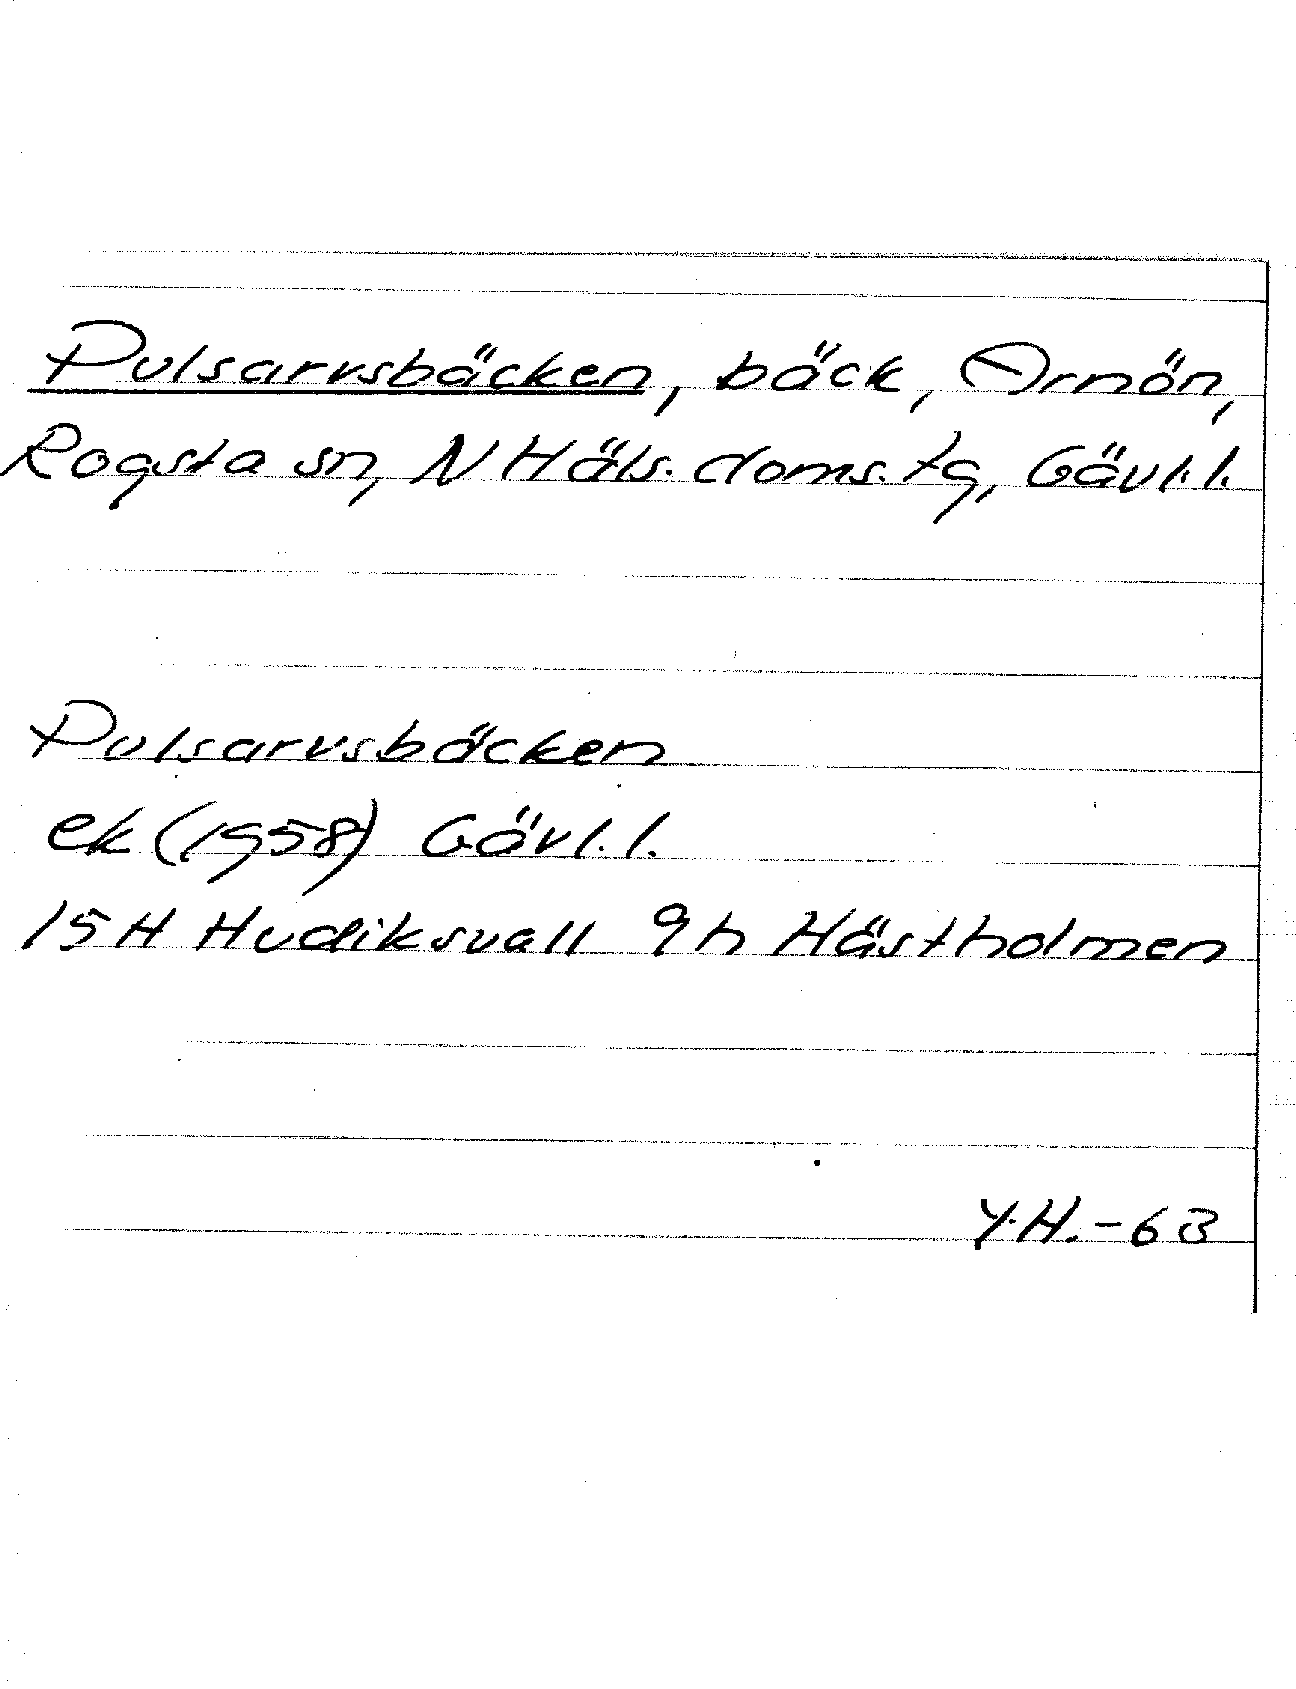 Pulsarvsbäcken, bäck, Arnön,
Rogsta sn, N Häls. doms. tg, Gävl.l.
Pulsarvsbäcken
ek (1958) Gävl.l.
15H Hudiksvall 9h Hästholmen
Y.H. -63